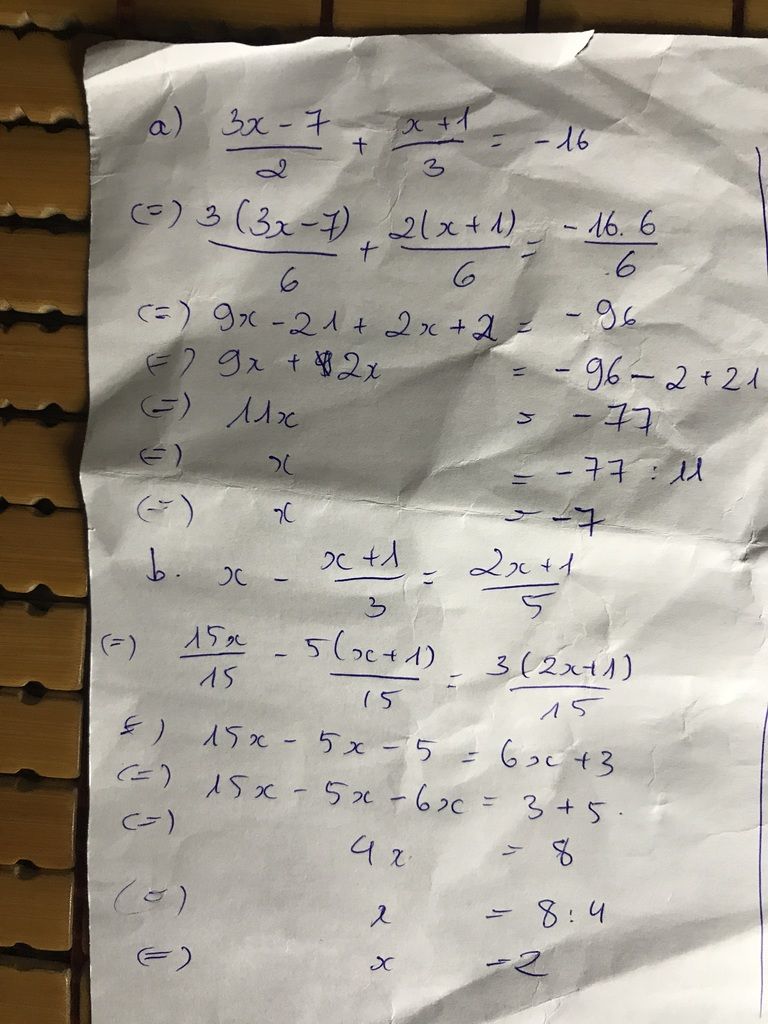 a) (3x - 7)/2 + (x + 1)/3 = -16
(=) 3(3x-7)/6 + 2(x+1)/6 = -16.6/6
(=) 9x - 21 + 2x + 2 = -96
(=) 9x + 2x = -96 - 2 + 21
(=) 11x = -77
(=) x = -77 : 11
(=) x = -7
b. x - (x+1)/3 = (2x+1)/5
(=) 15x/15 - 5(x+1)/15 = 3(2x+1)/15
(=) 15x - 5x - 5 = 6x + 3
(=) 15x - 5x - 6x = 3 + 5.
(=) 4x = 8
(=) x = 8 : 4
(=) x = 2